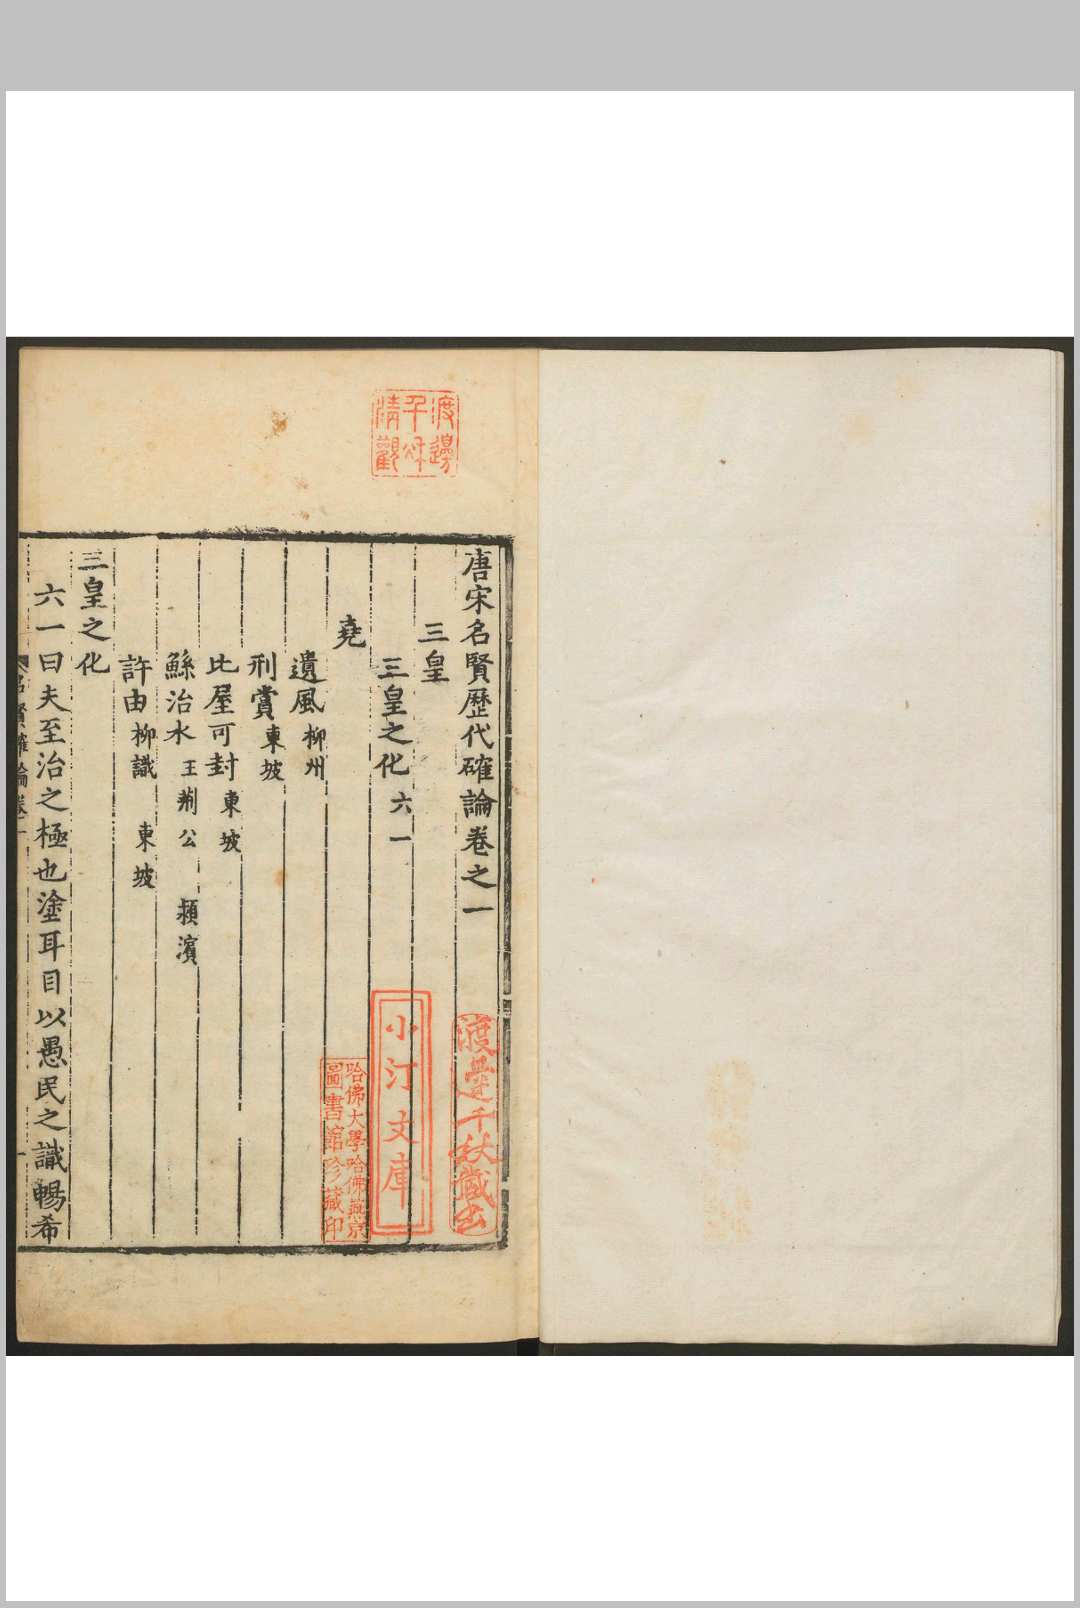 唐宋名賢歷代確論卷之一
三皇
三皇之化 六一
堯
遺風 柳州
刑賞 東坡
比屋可封 東坡
鯀治水 王荆公 潁濱
許由 柳識 東坡
三皇之化
六一曰夫至治之極也塗耳目以愚民之識暢希
名賢確論卷一
渡邊
千秋
清觀
渡邊千秋藏書
小汀文庫
哈佛大學哈佛燕京
圖書館珍藏印